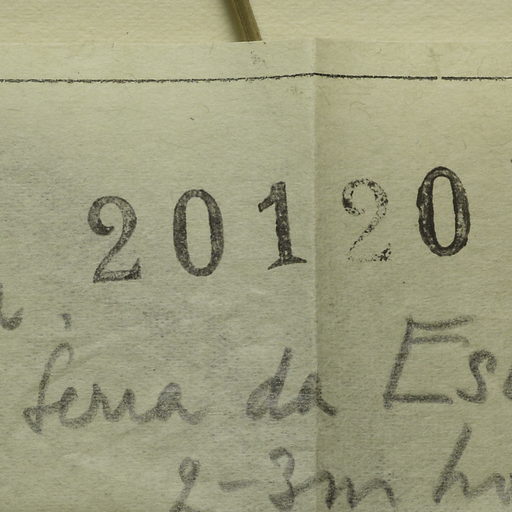 20120
Serra da
2-3m